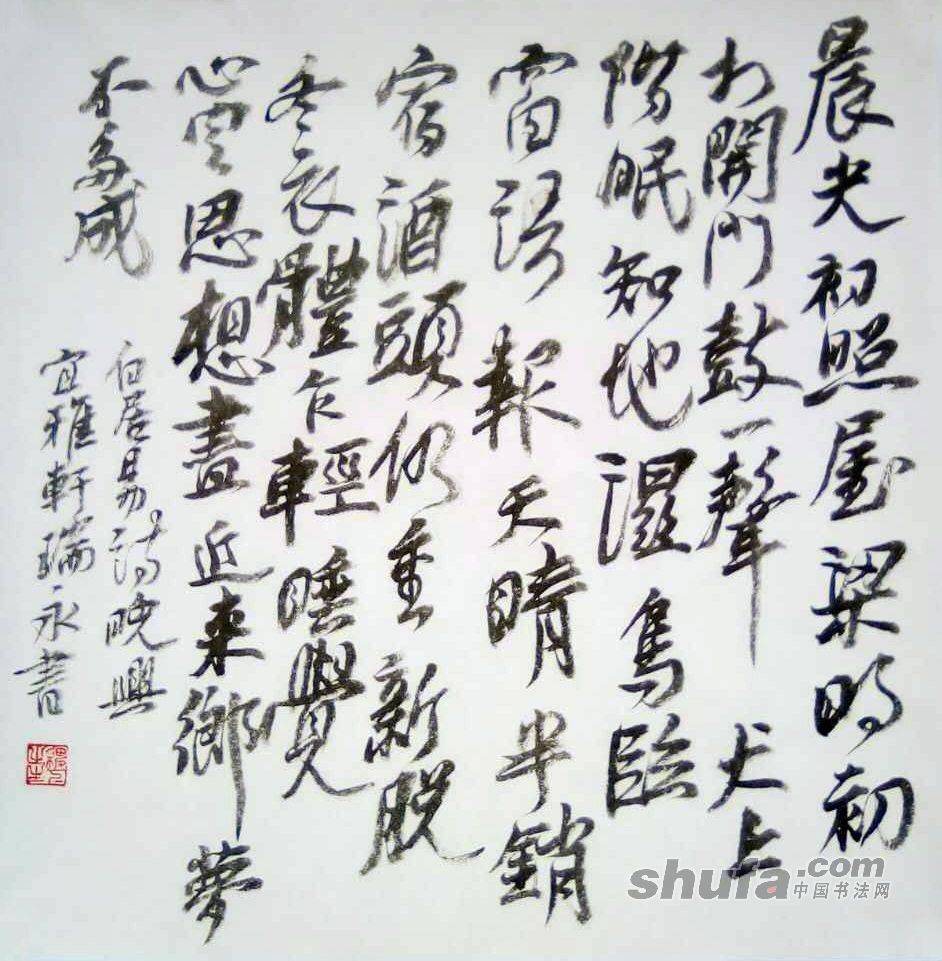 晨光初照屋梁明初
打開門鼓一聲犬上
階眠知地濕鳥臨
窗語報天晴半銷
宿酒頭仍重新脱
冬衣體乍輕睡覺
心空思想盡近來鄉夢
不多成
白居易詩晓興
宜雅軒瑞永書
shufa.com
中国书法网